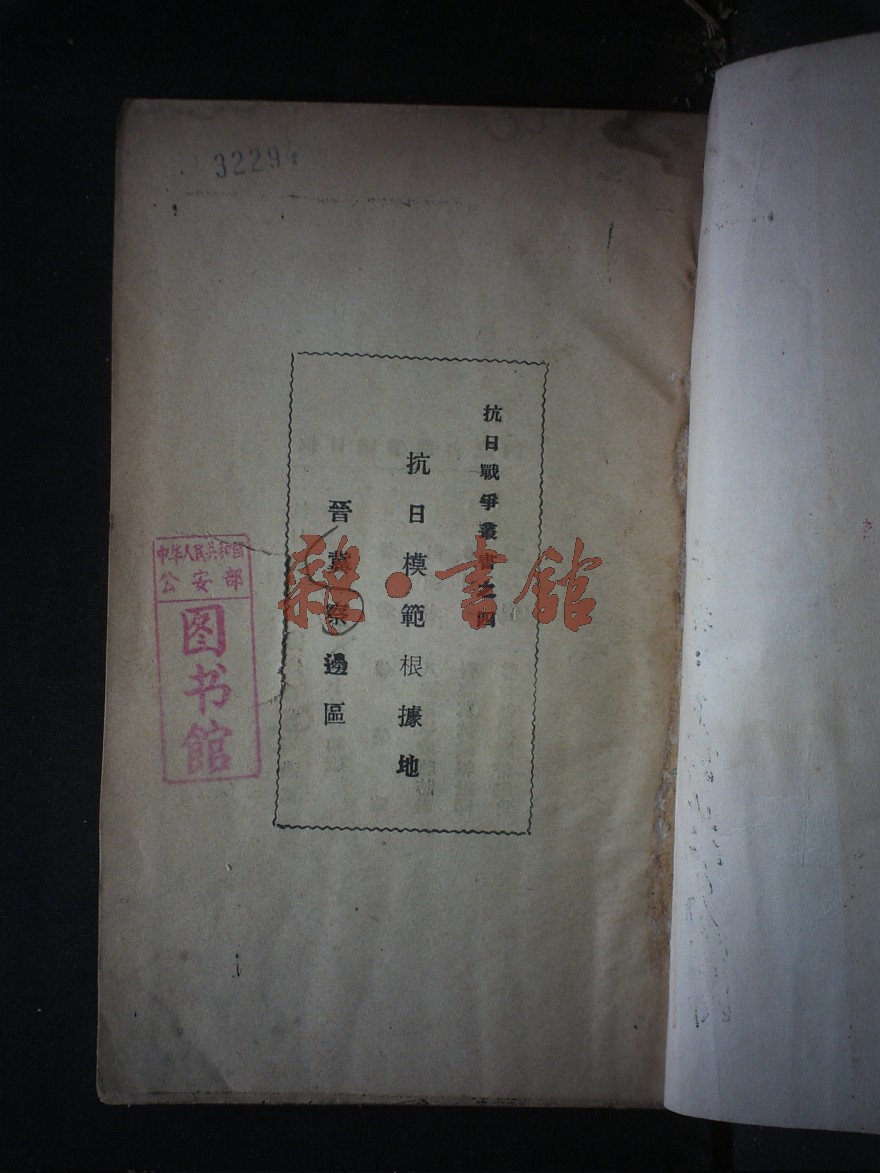 32294
抗日戰爭叢書之四
抗日模範根據地
晉冀察邊區
中华人民共和国
公安部
图书馆
雜·書館